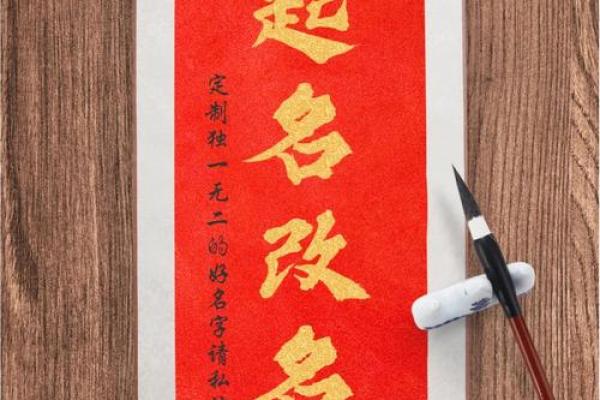 起名改名
定制独一无二的好名字请私